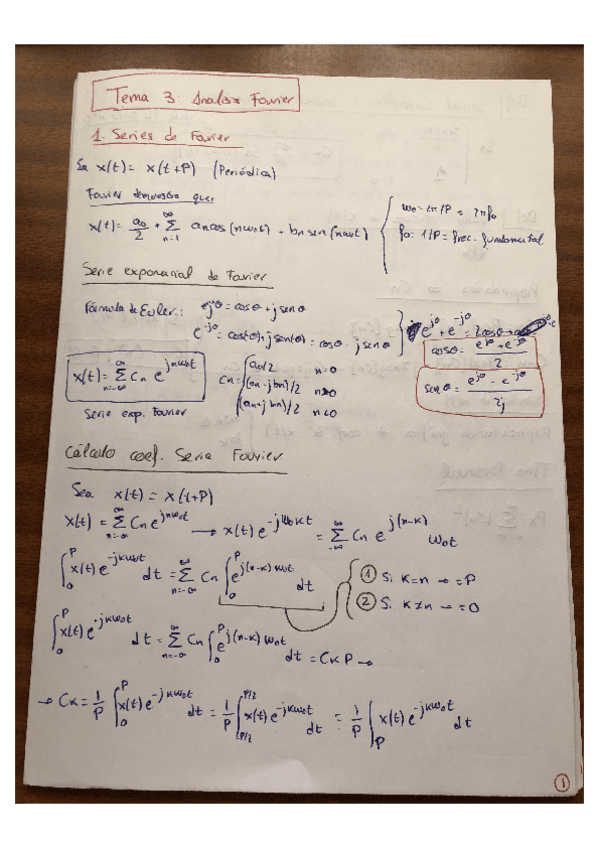 Tema 3: Analisis Fourier
1. Series de Fourier
Sea x(t) = x(t+P) (Periódica)
Fourier demuestra que:
x(t) = a₀/2 + Σ_{n=1}^{∞} aₙcos(nω₀t) + bₙ sen(nω₀t) { ω₀ = 2π/P = 2πf₀
f₀: 1/P = frec. fundamental
Serie exponencial de Fourier
Fórmula de Euler: e^{jθ} = cosθ + j senθ
e^{-jθ} = cos(-θ) + j sen(-θ) = cosθ - j senθ } e^{jθ} + e^{-jθ} = 2cosθ
cosθ = (e^{jθ} + e^{-jθ})/2
senθ = (e^{jθ} - e^{-jθ})/2j
x(t) = Σ_{n=-∞}^{∞} Cₙ e^{jnω₀t}
Serie exp. Fourier
Cₙ = { a₀/2 n=0
(aₙ - jbₙ)/2 n>0
(aₙ + jbₙ)/2 n<0
Cálculo coef. Serie Fourier
Sea x(t) = x(t+P)
x(t) = Σ_{n=-∞}^{∞} Cₙ e^{jnω₀t} → x(t) e^{-jω₀Kt} = Σ_{-∞}^{∞} Cₙ e^{j(n-K)ω₀t}
∫₀^P x(t) e^{-jKω₀t} dt = Σ_{n=-∞}^{∞} Cₙ ∫₀^P e^{j(n-K)ω₀t} dt { ① Si K=n → =P
② Si K≠n → =0
∫₀^P x(t) e^{-jKω₀t} dt = Σ_{n=-∞}^{∞} Cₙ ∫₀^P e^{j(n-K)ω₀t} dt = C_K P →
→ C_K = 1/P ∫₀^P x(t) e^{-jKω₀t} dt = 1/P ∫_{P/2}^{P/2} x(t) e^{-jKω₀t} dt = 1/P ∫_P x(t) e^{-jKω₀t} dt
1